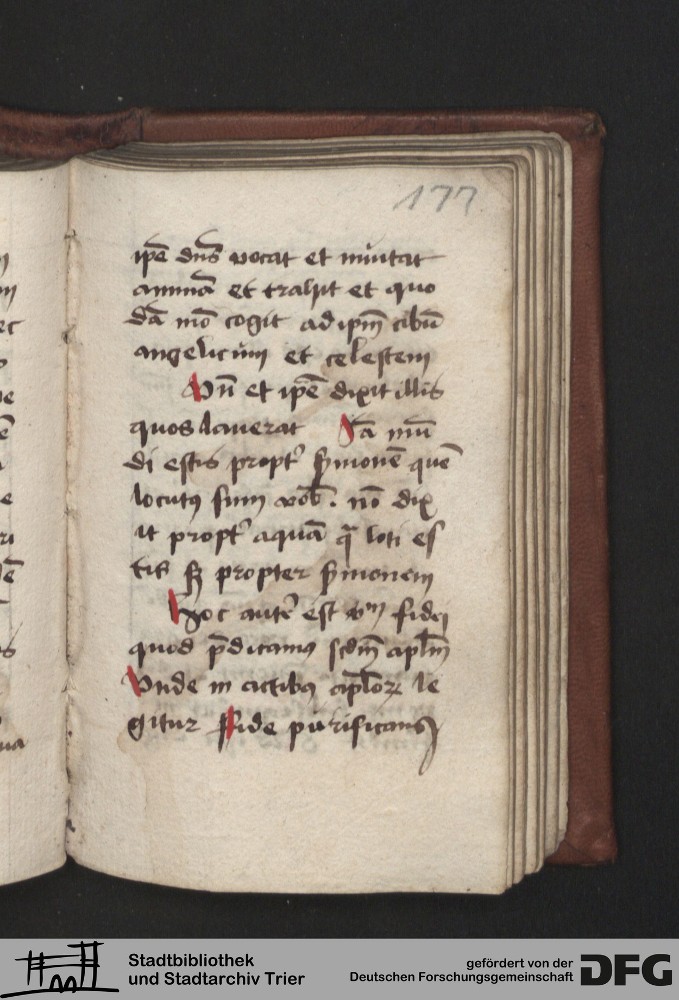 177
ipē dn̄s vocat et inuitat
animā et trahit et quo
dā mō cogit ad ipm̄ cibū
angelicum et celestem
Vn̄ et ipē dixit illis
quos lauerat Iā mū
di estis propt' s'monē quē
locutꝯ sum vob̄. nō dix
it propt' aquā q̄ loti es
tis sꝫ propter s'monem
Hoc autē est v'm fidei
quod p̄dicamꝯ scdm̄ aplm̄
Vnde in actibꝯ aplōꝝ le
gitur ffide purificans
Stadtbibliothek
und Stadtarchiv Trier
gefördert von der
Deutschen Forschungsgemeinschaft
DFG